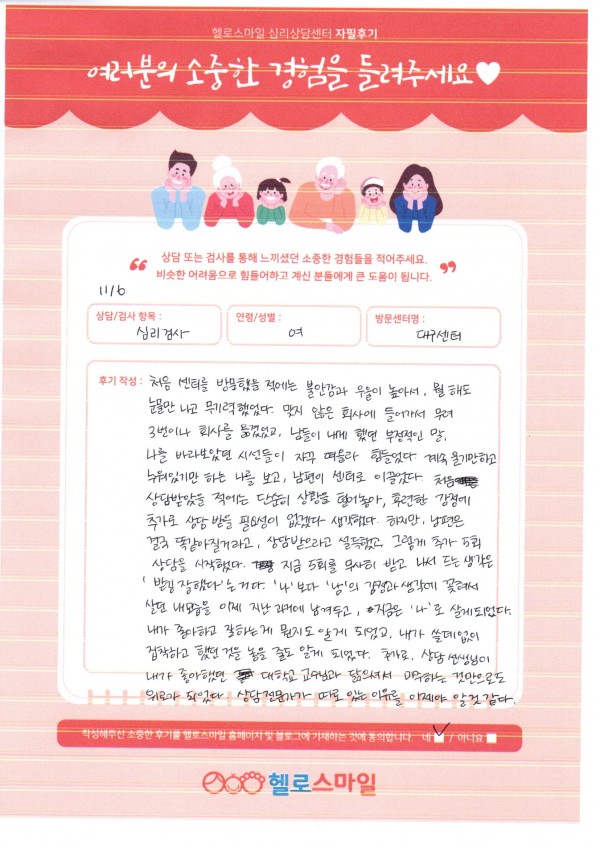 헬로스마일 심리상담센터 자필후기
여러분의 소중한 경험을 들려주세요
상담 또는 검사를 통해 느끼셨던 소중한 경험들을 적어주세요.
비슷한 어려움으로 힘들어하고 계신 분들에게 큰 도움이 됩니다.
11/6
상담/검사 항목 : 심리검사
연령/성별 : 여
방문센터명 : 대구센터
후기 작성 : 처음 센터를 방문했을 적에는 불안감과 우울이 높아서, 뭘 해도
눈물만 나고 무기력했었다. 맞지 않은 회사에 들어가서 무려
3번이나 회사를 옮겼었고, 남들이 내게 했던 부정적인 말,
나를 바라보았던 시선들이 자꾸 떠올라 힘들었다. 계속 울기만하고
누워있기만 하는 나를 보고, 남편이 센터로 이끌었다. 처음
상담받았을 적에는 단순히 상황을 털어놓아, 후련한 감정에
추가로 상담 받을 필요성이 없겠다 생각했다. 하지만, 남편은
결국 똑같아질거라고, 상담받으라고 설득했고, 그렇게 추가 5회
상담을 시작했다. 지금 5회를 무사히 받고 나서 드는 생각은
'받길 잘했다'는 거다. '나'보다 '남'의 감정과 생각에 꽂혀서
살던 내모습을 이제 지난 과거에 남겨두고, 지금은 '나'로 살게 되었다.
내가 좋아하고 잘하는게 뭔지도 알게 되었고, 내가 쓸데없이
집착하고 했던 것을 놓을 줄도 알게 되었다. 추가로, 상담 선생님이
내가 좋아했던 대학교 교수님과 닮으셔서 마주하는 것만으로도
위로가 되었다. 상담전문가가 따로 있는 이유를 이제야 알 것 같다.
작성해주신 소중한 후기를 헬로스마일 홈페이지 및 블로그에 기재하는 것에 동의합니다. 네 / 아니요
헬로스마일